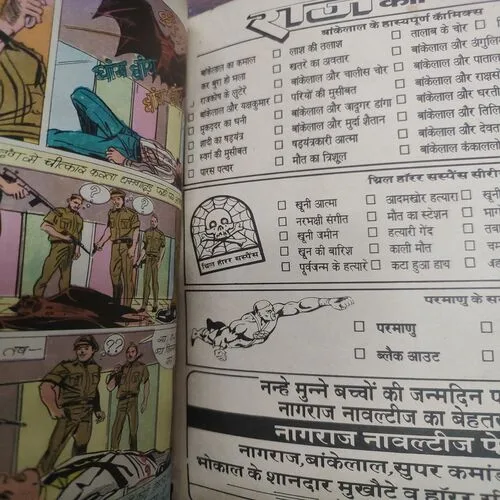 धांय धांय
?
?
??
तब-
राज कॉमि
बांकेलाल के हास्यपूर्ण कॉमिक्स
बांकेलाल का कमाल
कर बुरा हो भला
राजकोष के लुटेरे
बांकेलाल और यक्षकुमार
मुकद्दर का धनी
शादी का षड़यंत्र
स्वर्ग की मुसीबत
पारस पत्थर
लाश की तलाश
खतरे का अवतार
बांकेलाल और चालीस चोर
परियों की मुसीबत
बांकेलाल और जादूगर डांगा
बांकेलाल और मुर्दा शैतान
षड़यंत्रकारी आत्मा
मौत का त्रिशूल
तालाब के चोर
बांकेलाल और अंगुलि
बांकेलाल और पाताल
बांकेलाल और राक्ष
बांकेलाल और धरती
बांकेलाल और तिलि
बांकेलाल और देवत
बांकेलाल कंकाललो
थ्रिल हॉरर सस्पेंस सीरी
थ्रिल हॉरर सस्पेंस
खूनी आत्मा
नरभक्षी संगीत
खूनी जमीन
खून की बारिश
पूर्वजन्म के हत्यारे
आदमखोर हत्यारा
मौत का स्टेशन
हत्यारी गेंद
काली मौत
कटा हुआ हाथ
खूनी
परमाणु के स
परमाणु
ब्लैक आउट
नन्हे मुन्ने बच्चों की जन्मदिन प
नागराज नावल्टीज का बेहतर
नागराज नावल्टीज पे
नागराज, बांकेलाल, सुपर कमां
भोकाल के शानदार मुखौटे व हॉर